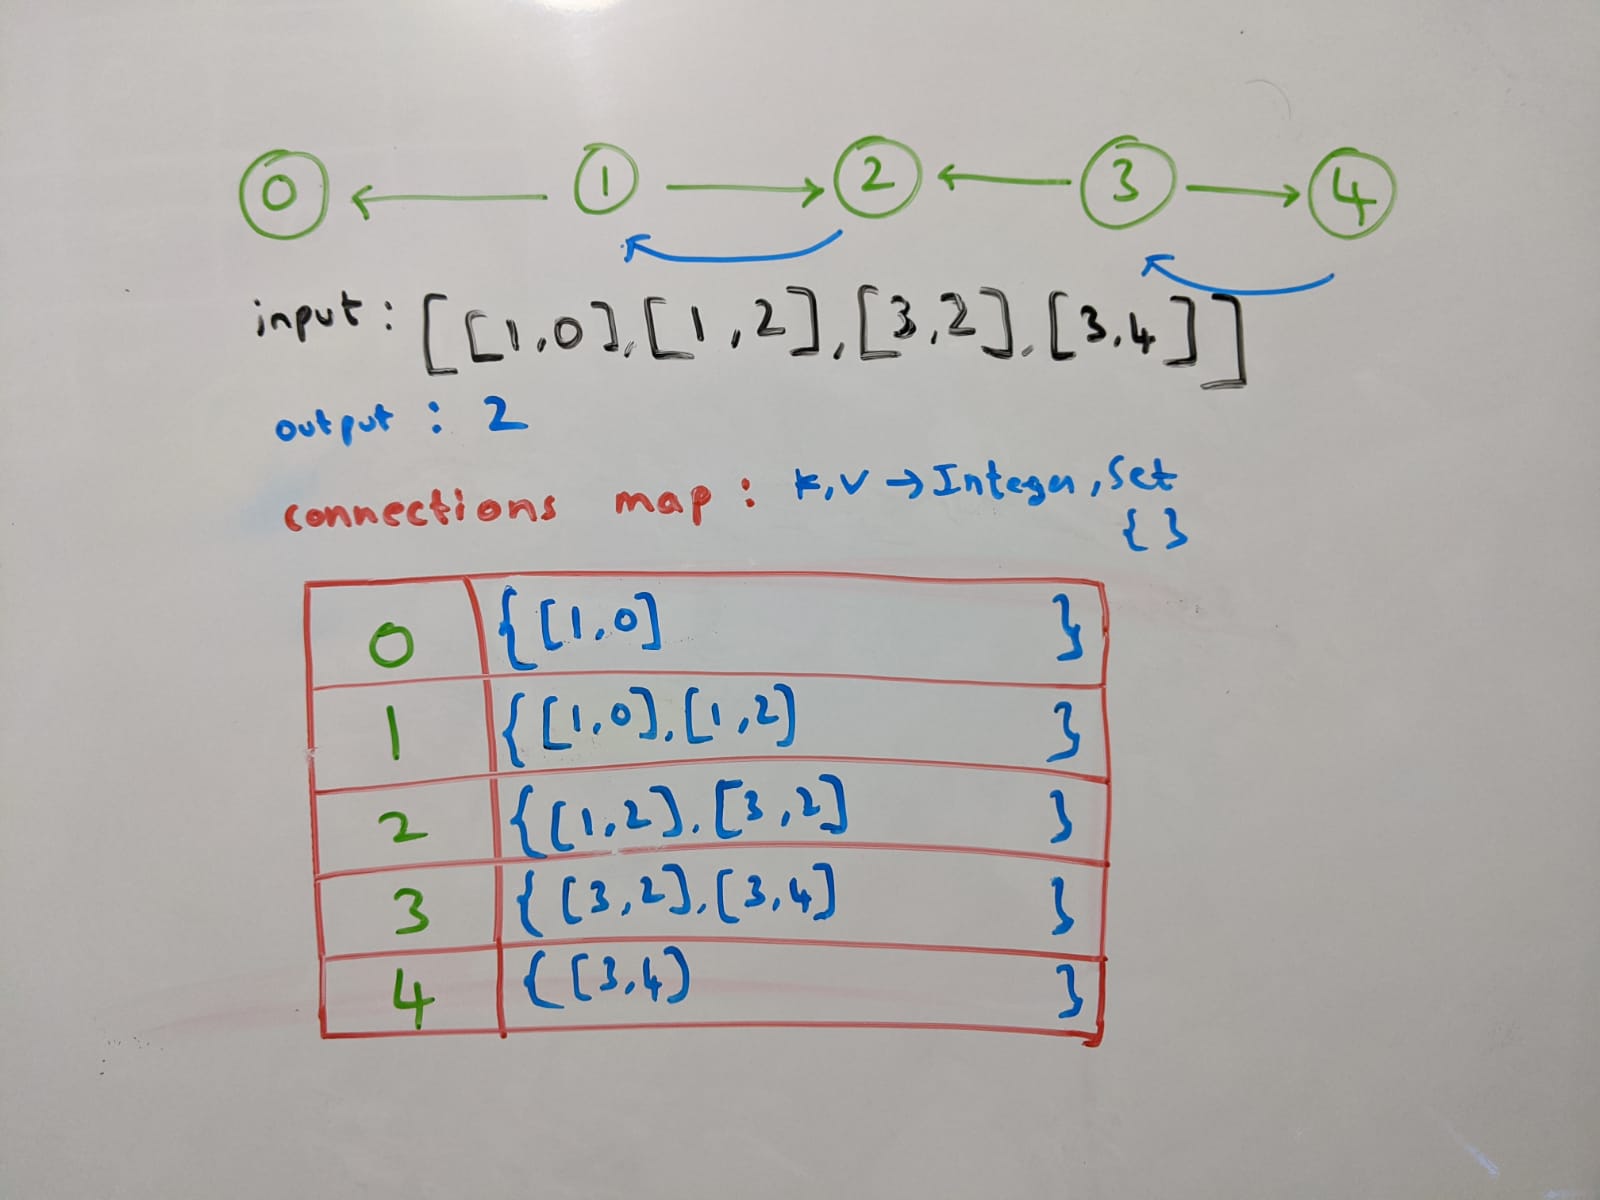 0 1 2 3 4
input: [[1,0],[1,2],[3,2],[3,4]]
output : 2
connections map : k,v → Integer, Set
{ }
0 {[1,0] }
1 {[1,0],[1,2] }
2 {[1,2],[3,2] }
3 {[3,2],[3,4] }
4 {[3,4) }